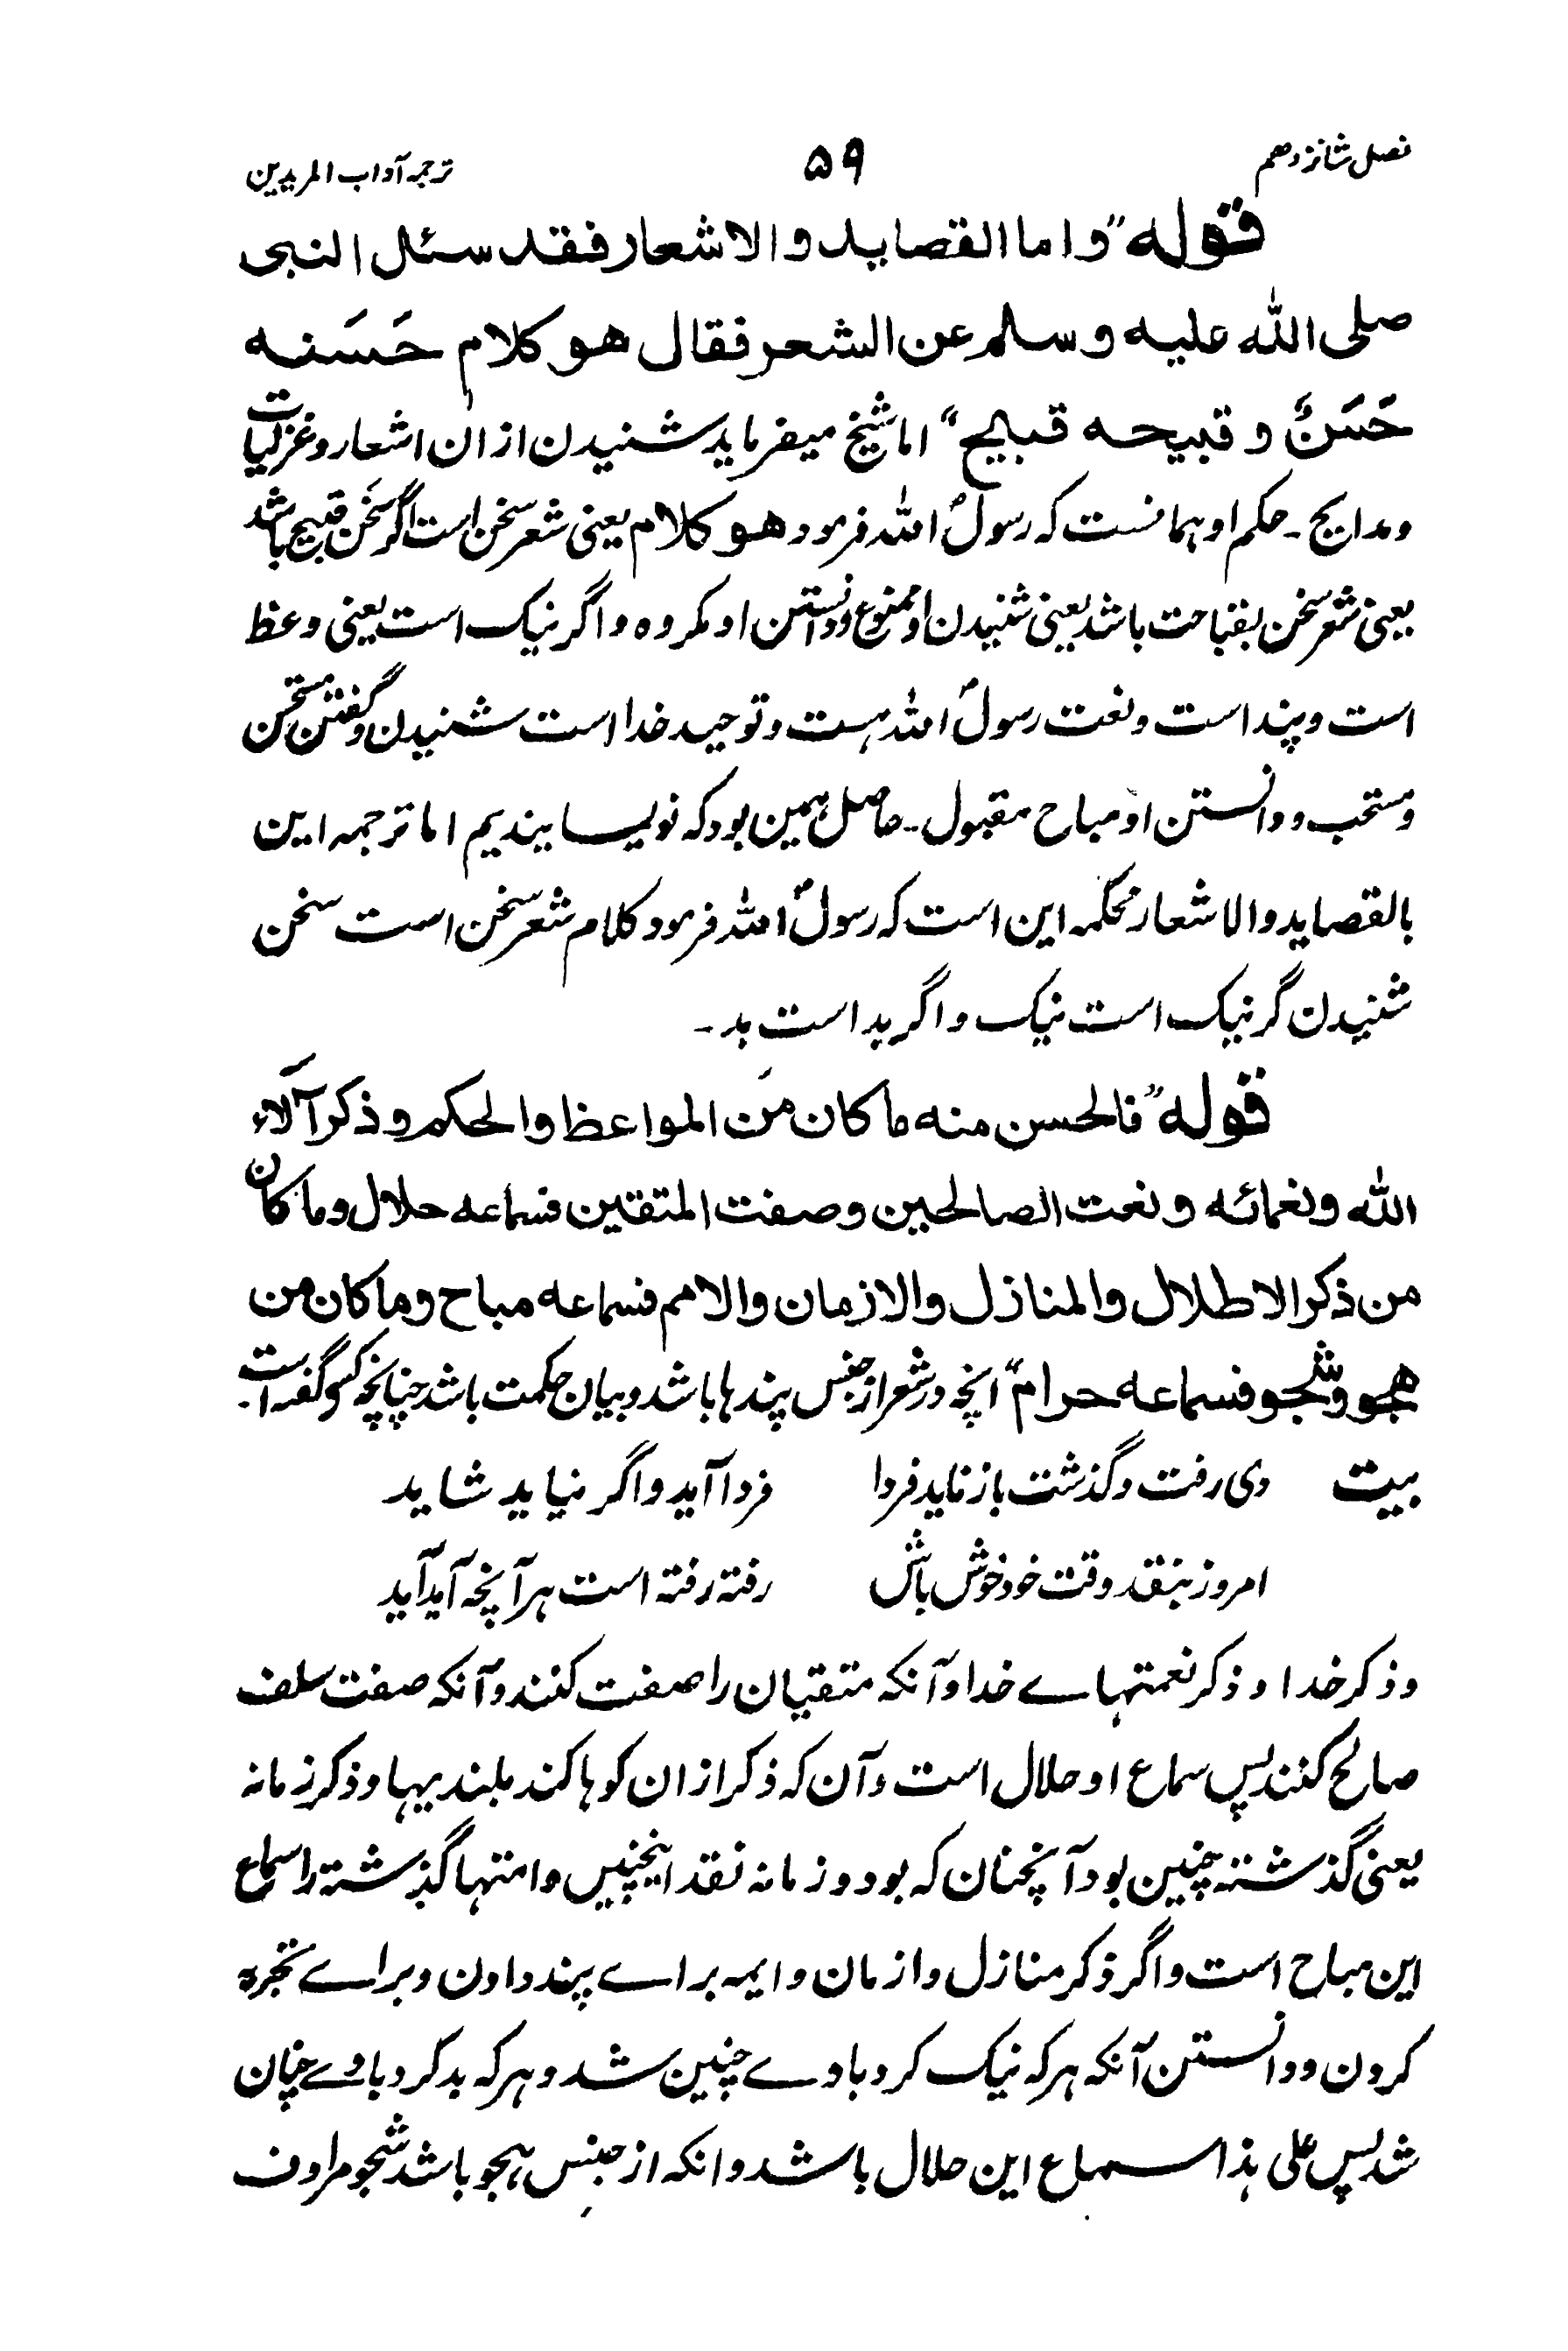 فصل شانزدهم ۵۹ ترجمہ آداب المریدین
قوله "واما القصايد والاشعار فقد سئل النبى
صلى الله عليه وسلم عن الشعر فقال هو كلام حَسَنه
حَسَنٌ وقبيحه قبيح" اما شیخ میفرماید شنیدن ازان اشعار وغزلیات
ومدایح ۔ حکم او ہمانست کہ رسولؐ اللہ فرمود هو كلام یعنی شعر سخن است اگر سخن قبیح باشد
یعنی شعر سخن بقباحت باشد یعنی شنیدن او ممنوع ودانستن او مکروہ واگر نیک است یعنی وعظ
است وپند است ونعت رسولؐ اللہ ہست وتوحید خدا است شنیدن وگفتن مستحسن
ومستحب ودانستن او مباح مقبول ۔ حاصل ہمین بود کہ نویسایندیم اما ترجمہ این
بالقصاید والاشعار محکمہ این است کہ رسولؐ اللہ فرمود کلام شعر سخن است سخن
شنیدن گر نیک است نیک واگر بد است بد ۔
قوله "فالحسن منه ما كان من المواعظ والحكم وذكر آلاء
الله ونعمائه ونعت الصالحين وصفت المتقين فسماعه حلال وما كان
من ذكر الاطلال والمنازل والازمان والامم فسماعه مباح وما كان من
هجو وشجو فسماعه حرام" انچہ در شعر از جنس پندہا باشد وبیان حکمت باشد چنانچہ کسو گفتہ است.
بیت دی رفت وگذشت باز ناید فردا فردا آید واگر نیاید شاید
امروز بنقد وقت خود خوش باش رفتہ رفتہ است ہر آنچہ آید آید
وذکر خدا وذکر نعمتہاے خدا وآنکہ متقیان را صفت کنند وآنکہ صفت سلف
صالح کنند پس سماع او حلال است وآن کہ ذکر ازان کوہا کند بلندیہا وذکر زمانہ
یعنی گذشتہ چنین بود آنچنان کہ بود وزمانہ نقد اینچنیں وامتہا گذشتہ را سماع
این مباح است واگر ذکر منازل وازمان وایمہ براے پند دادن وبراے تجربہ
کردن ودانستن آنکہ ہر کہ نیک کرد باوے چنین شد وہر کہ بد کرد باوے چنان
شد پس علی ہذا سماع این حلال باشد وانکہ از جنس ہجو باشد شجو مرادف